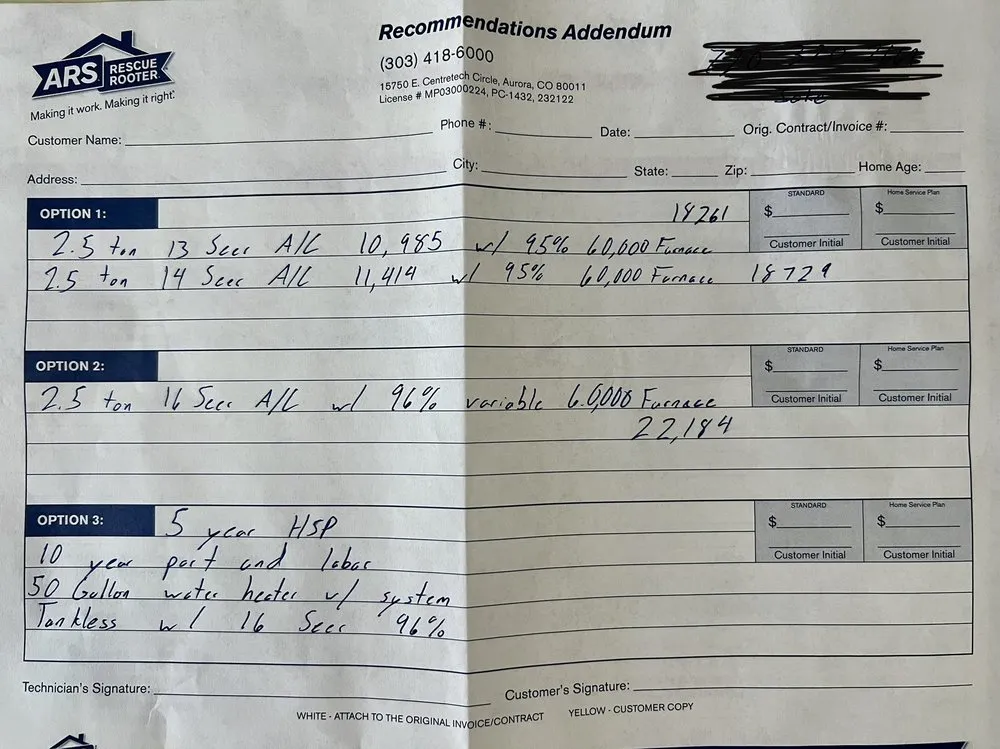 Recommendations Addendum
ARS RESCUE ROOTER
Making it work. Making it right.
(303) 418-6000
15750 E. Centretech Circle, Aurora, CO 80011
License # MP03000224, PC-1432, 232122
Customer Name: Phone #: Date: Orig. Contract/Invoice #:
Address: City: State: Zip: Home Age:
OPTION 1: 18261 STANDARD $ Customer Initial Home Service Plan $ Customer Initial
2.5 ton 13 Seer A/C 10,985 w/ 95% 60,000 Furnace
2.5 ton 14 Seer A/C 11,414 w/ 95% 60,000 Furnace 18729
OPTION 2: STANDARD $ Customer Initial Home Service Plan $ Customer Initial
2.5 ton 16 Seer A/C w/ 96% variable 60,000 Furnace
22,184
OPTION 3: 5 year HSP STANDARD $ Customer Initial Home Service Plan $ Customer Initial
10 year part and labor
50 Gallon water heater w/ system
Tankless w/ 16 Seer 96%
Technician's Signature: Customer's Signature:
WHITE - ATTACH TO THE ORIGINAL INVOICE/CONTRACT YELLOW - CUSTOMER COPY